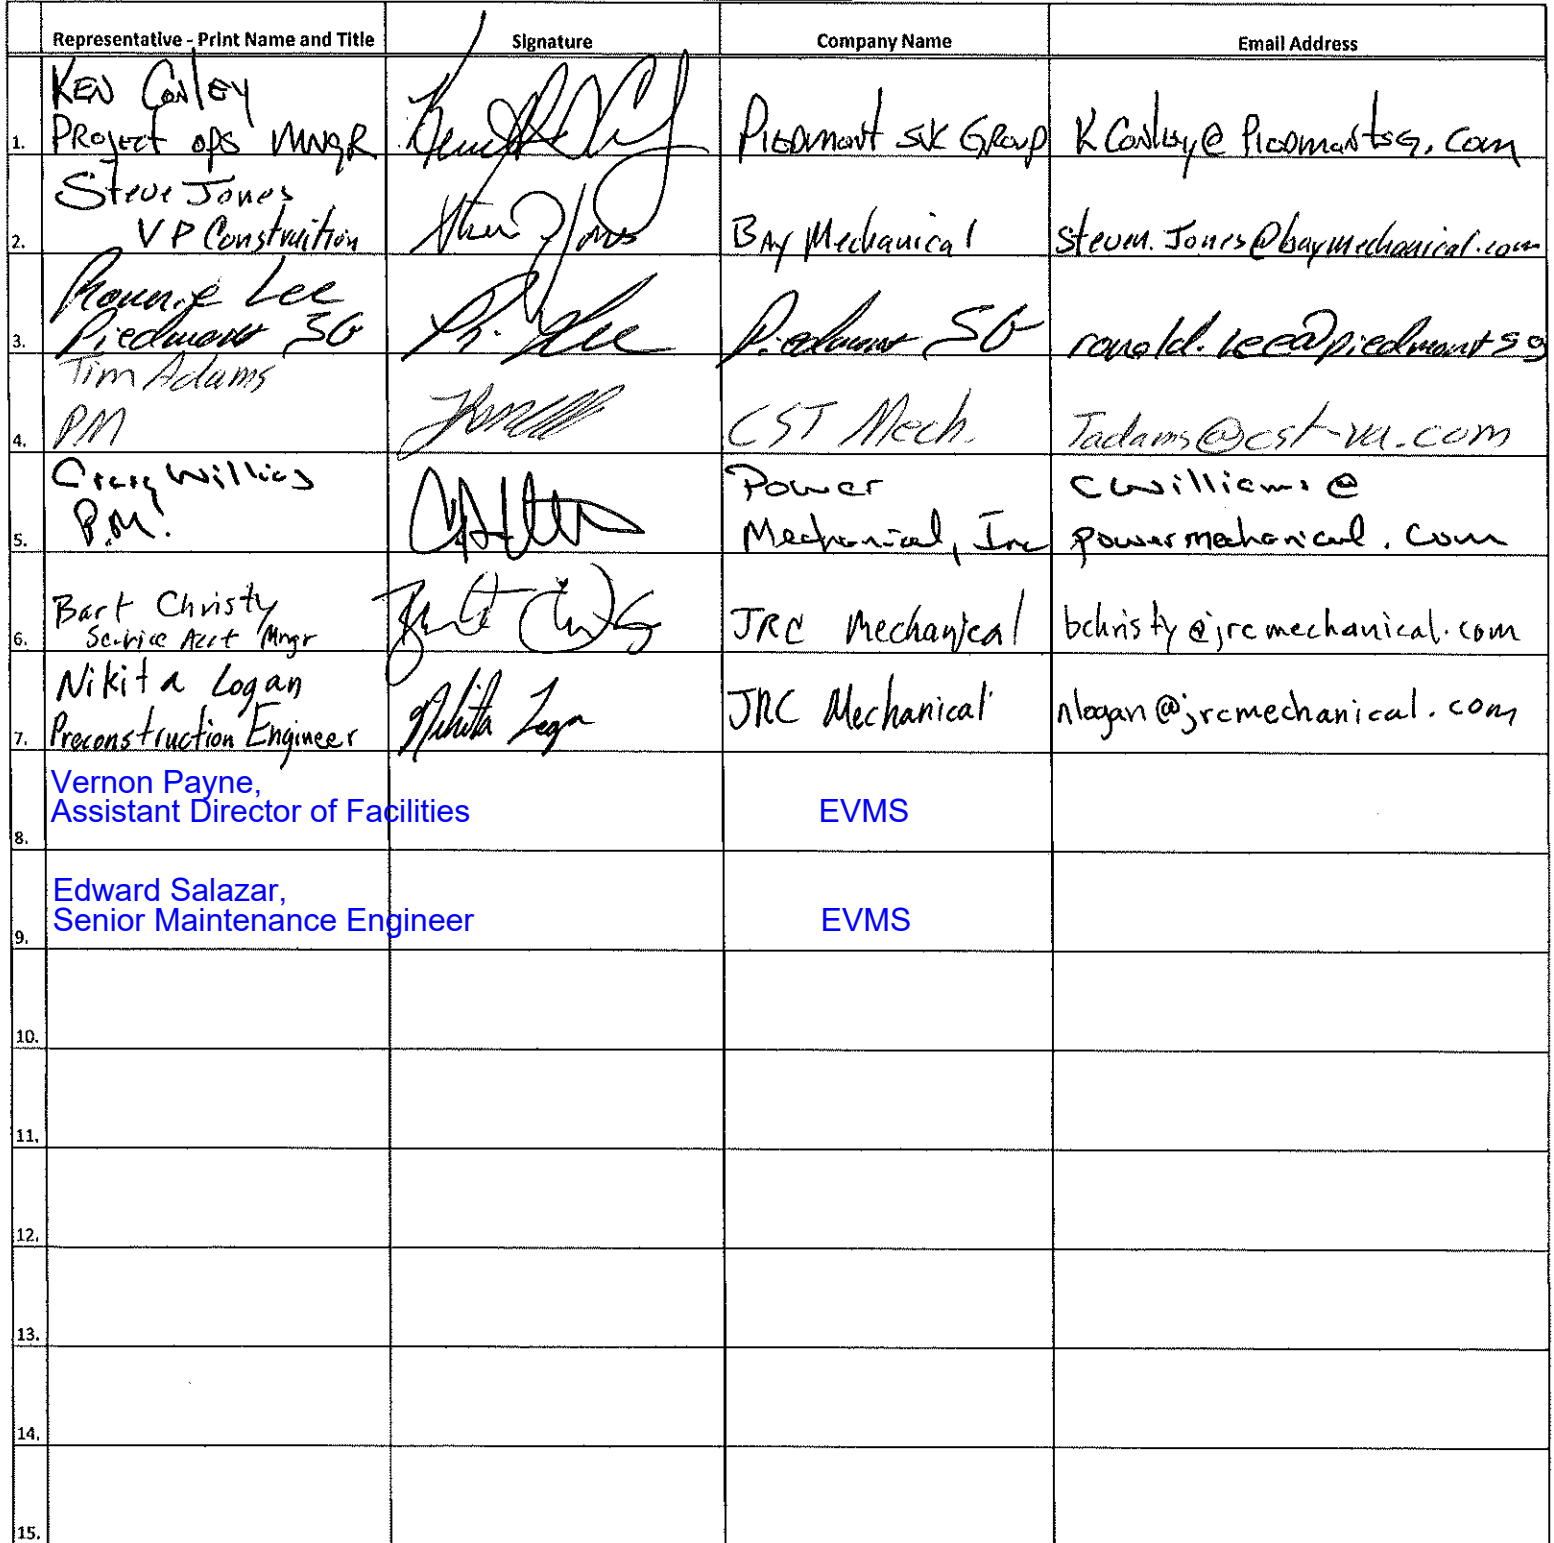 Representative - Print Name and Title Signature Company Name Email Address
Ken Conley
1. Project ops Mngr Piedmont SVC Group KConley@Piedmontsg.com
Steve Jones
2. VP Construition Bay Mechanical Steven.Jones@baymechanical.com
Ronnie Lee
3. Piedmont SG Piedmont SG ronald.lee@piedmontsg
Tim Adams
4. PM CST Mech. Tadams@cst-va.com
Craig Willias Power cwilliams@
5. P.M. Mechanical, Inc powermechanical.com
Bart Christy
6. Service Acct Mngr JRC Mechanical bchristy@jrcmechanical.com
Nikita Logan
7. Preconstruction Engineer Nikita Logan JRC Mechanical nlogan@jrcmechanical.com
Vernon Payne,
Assistant Director of Facilities EVMS
8.
Edward Salazar,
Senior Maintenance Engineer EVMS
9.
10.
11.
12.
13.
14.
15.